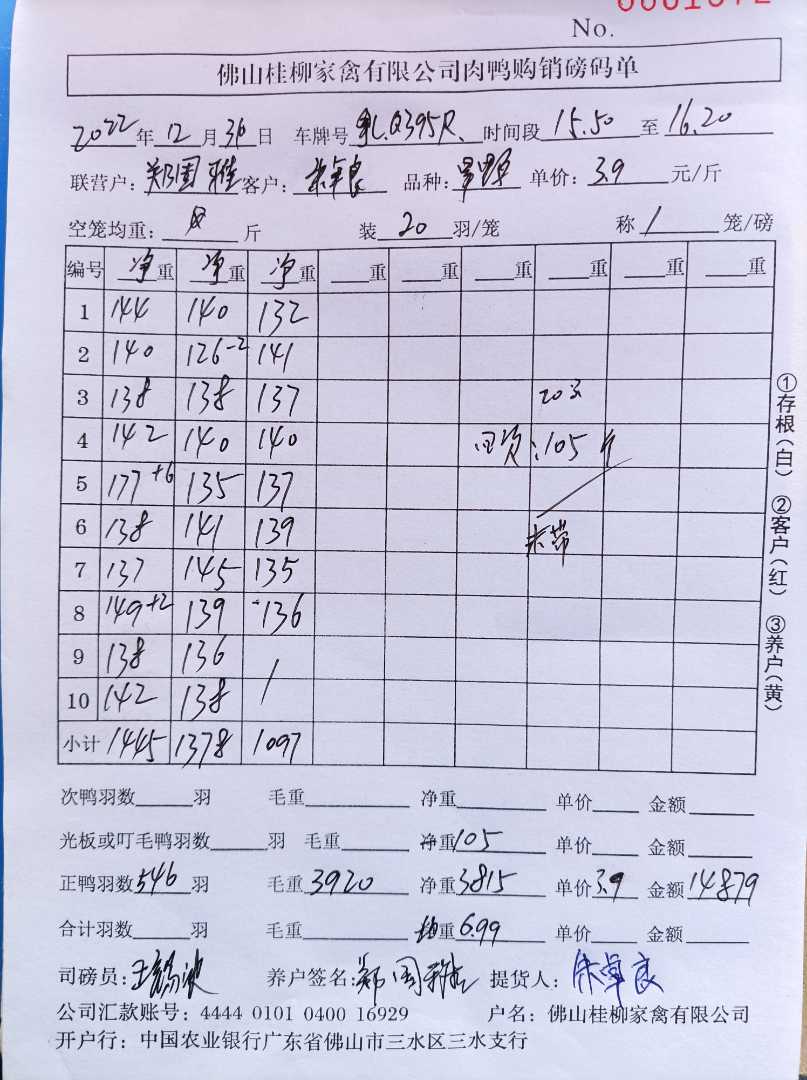 No.
佛山桂柳家禽有限公司肉鸭购销磅码单
2022年12月30日 车牌号 Q395R 时间段15.50至16.20
联营户：郑国雅 客户：朱卓良 品种： 单价：3.9元/斤
空笼均重： 斤 装20羽/笼 称1笼/磅
编号 净重 净重 净重 重 重 重 重 重 重
1 144 140 132
2 140 126-2 141
3 138 138 137 20只
4 142 140 140 回货：105斤
5 177+6 135 137
6 138 141 139 未带
7 137 145 135
8 149+2 139 136
9 138 136 /
10 142 138
小计 1445 1378 1097
①存根(白) ②客户(红) ③养户(黄)
次鸭羽数 羽 毛重 净重 单价 金额
光板或叮毛鸭羽数 羽 毛重 净重105 单价 金额
正鸭羽数546羽 毛重3920 净重3815 单价3.9 金额14879
合计羽数 羽 毛重 均重6.99 单价 金额
司磅员： 养户签名：郑国雅 提货人：朱卓良
公司汇款账号：4444 0101 0400 16929 户名：佛山桂柳家禽有限公司
开户行：中国农业银行广东省佛山市三水区三水支行